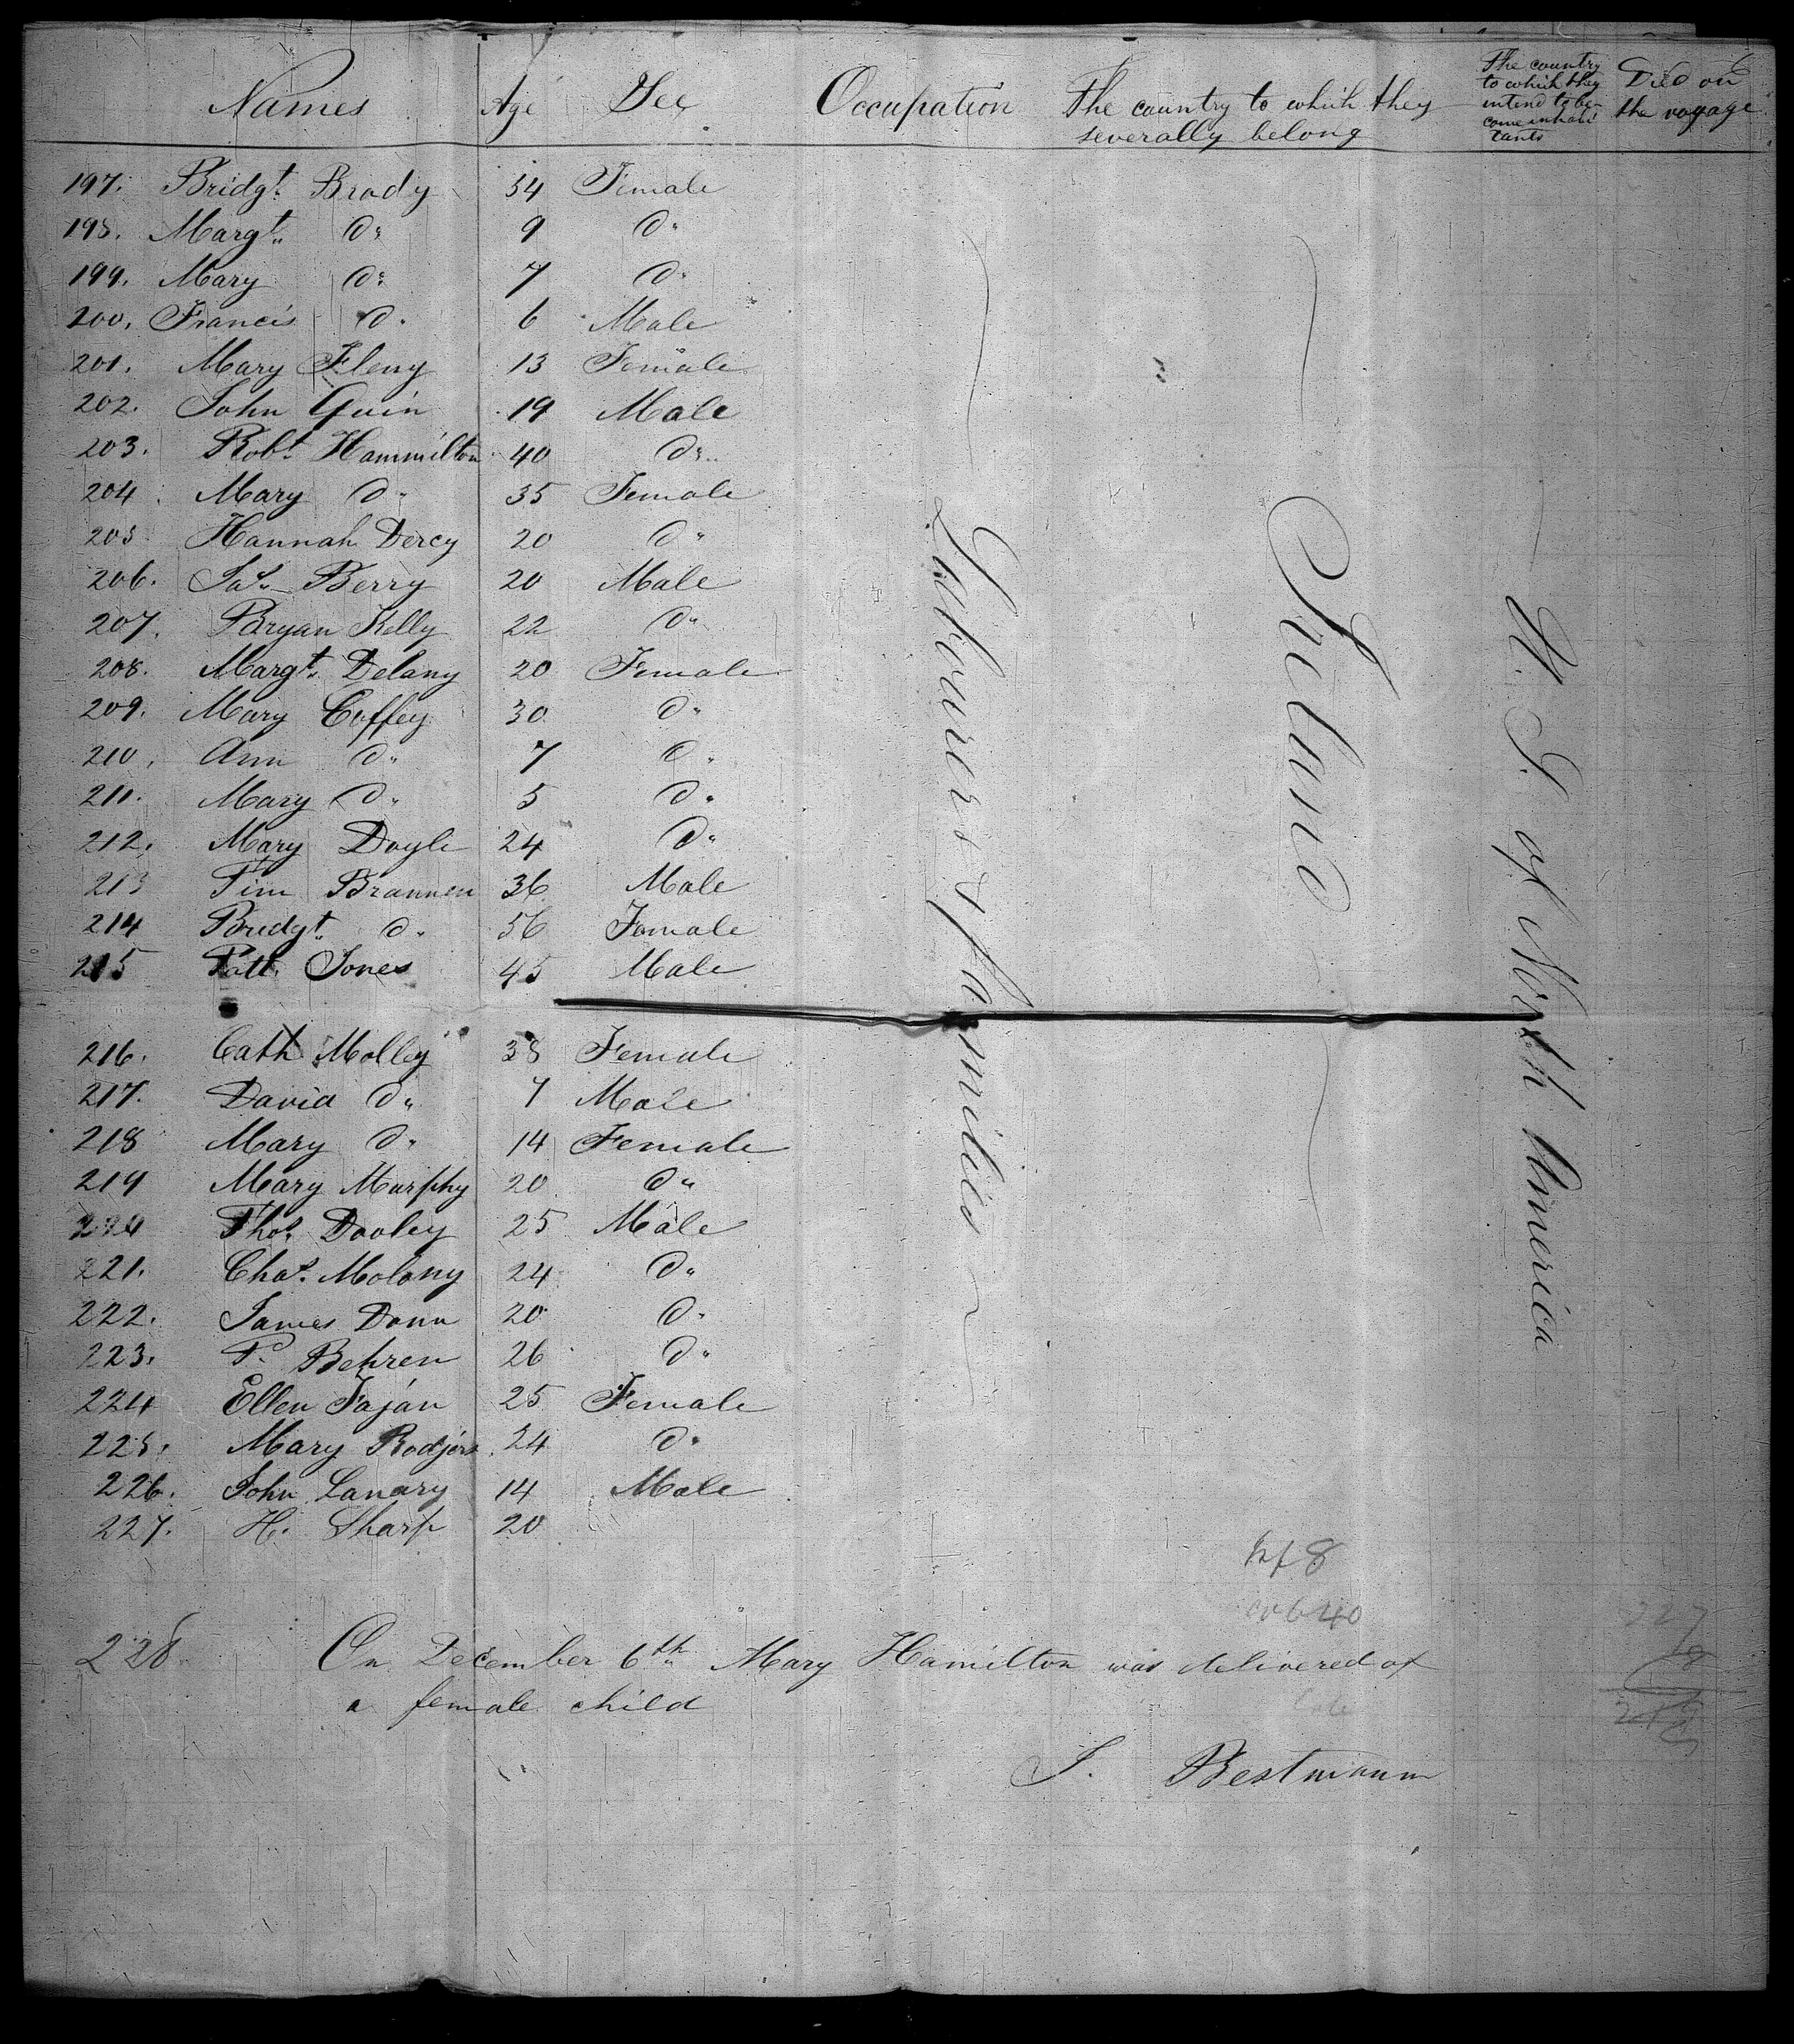 Names Age Sex Occupation The country to which they severally belong The country to which they intend to become inhabitants Died on the voyage
197. Bridgt. Brady 34 Female
198. Margt. Do 9 Do
199. Mary Do 7 Do
200. Francis Do 6 Male
201. Mary Fleny 13 Female
202. John Quin 19 Male
203. Robt. Hammilton 40 Do
204. Mary Do 35 Female
205 Hannah Dercy 20 Do
206. Jas. Berry 20 Male
207. Bryan Kelly 22 Do
208. Margt. Delany 20 Female
209. Mary Coffey 30 Do
210. Ann Do 7 Do
211. Mary Do 5 Do
212. Mary Doyle 24 Do
213 Tim Brannen 36 Male
214 Bridgt. Do 36 Female
215 Patt. Jones 45 Male
216. Cath Molley 38 Female
217. David Do 7 Male
218 Mary Do 14 Female
219 Mary Murphy 20 Do
220 Thos. Dooley 25 Male
221. Chas. Molony 24 Do
222. James Donn 20 Do
223. P. Behren 26 Do
224 Ellen Fajan 25 Female
225. Mary Rodjers 24 Do
226. John Lanary 14 Male
227. H. Sharp 20
Labourers & families
Ireland
U. S. of North America
228 On December 6th Mary Hamilton was delivered of
a female child
J. Bestmann